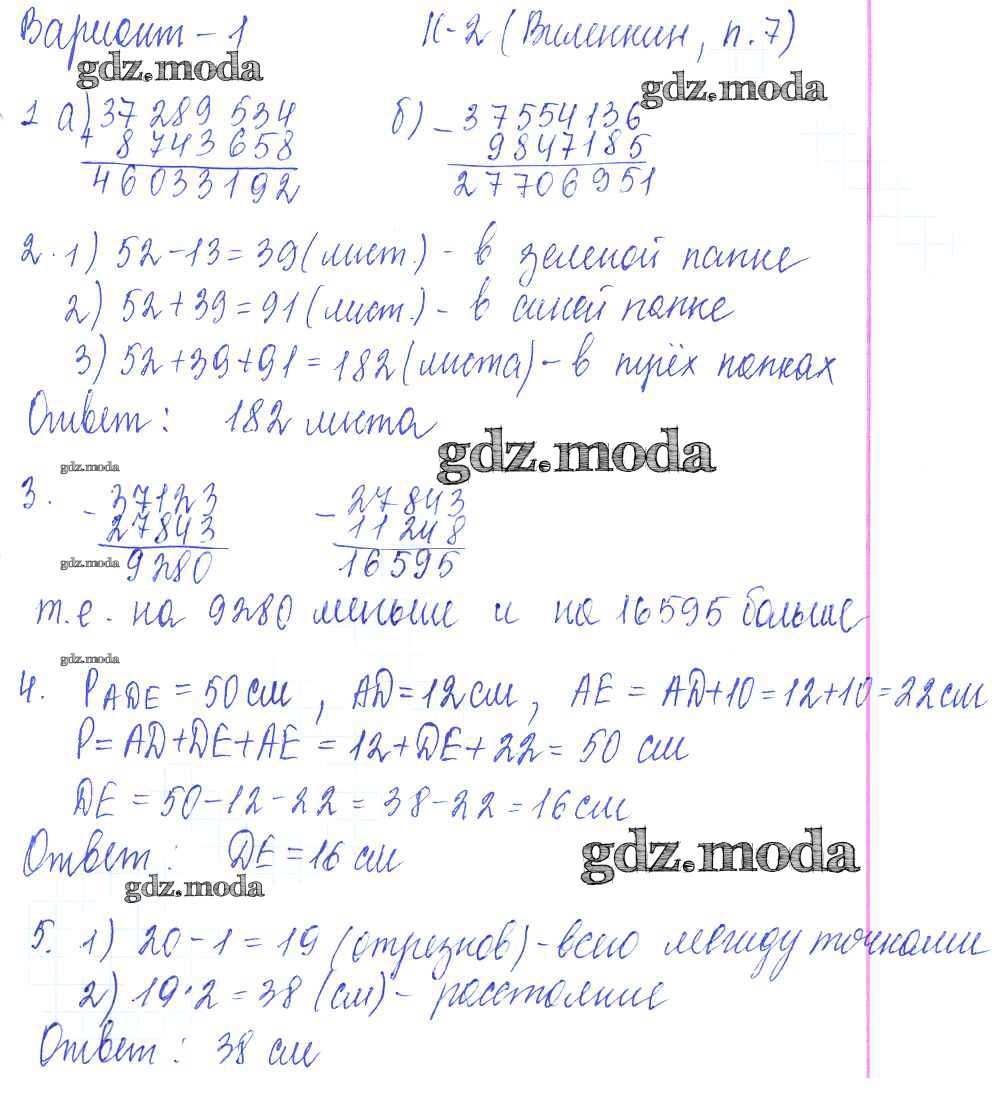 Вариант - 1 К-2 (Виленкин, п.7)
gdz.moda
gdz.moda
1 а) 37 289 534 б) - 37554136
+ 8 743 658 9847185
46033192 27706951
2. 1) 52 - 13 = 39 (лист.) - в зеленой папке
2) 52 + 39 = 91 (лист.) - в синей папке
3) 52 + 39 + 91 = 182 (листа) - в трёх папках
Ответ: 182 листа
gdz.moda
gdz.moda
3. - 37123 - 27843
27843 11248
gdz.moda
9280 16595
т.е. на 9280 меньше и на 16595 больше
gdz.moda
4. PADE = 50 см, AD = 12 см, AE = AD+10 = 12+10 = 22 см
P = AD+DE+AE = 12+DE+22 = 50 см
DE = 50-12-22 = 38-22 = 16 см
Ответ: DE = 16 см
gdz.moda
gdz.moda
5. 1) 20 - 1 = 19 (отрезков) - всего между точками
2) 19 · 2 = 38 (см) - расстояние
Ответ: 38 см